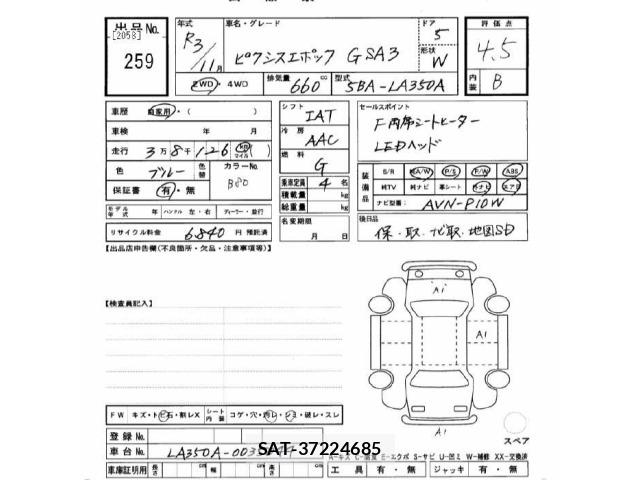 出品No.
[2058]
259
年式 R3/11月
車名・グレード ピクシスエポック GSA3
ドア 5
形状 W
2WD・4WD
排気量 660 cc
型式 5BA-LA350A
評価点 4.5
内装 B
車歴 自家用・( )
車検 年 月
走行 3万8千126 km マイル
色 ブルー 色替 カラーNo. B80
保証書 有・無
モデル年式 年 ハンドル 左・右 ディーラー・並行
リサイクル料金 6840 円 預託済
シフト IAT
冷房 AAC
燃料 G
乗車定員 4 名
積載量 kg
総重量 kg
名変期限 月 日
セールスポイント
F両席シートヒーター
LEDヘッド
装備品 S/R A/W P/S P/W ABS
純TV 純ナビ 革シート 外ナビ エアB
ナビ型番: AVN-P10W
後日品
保・取、ナビ取、地図SD
【出品店申告欄(不良箇所・欠品・注意事項等)】
【検査員記入】
A1
A1
A1
スペア
FW キズ・トビ石・割レX シート内装 コゲ・穴・汚レ・シミ・破レ・スレ
登録No.
車台No. LA350A-003
SAT-37224685
車庫証明用 長さ cm 幅 cm 高さ cm
工具 有・無 ジャッキ 有・無
E-エクボ S-サビ U-凹ミ W-補修 XX-交換済